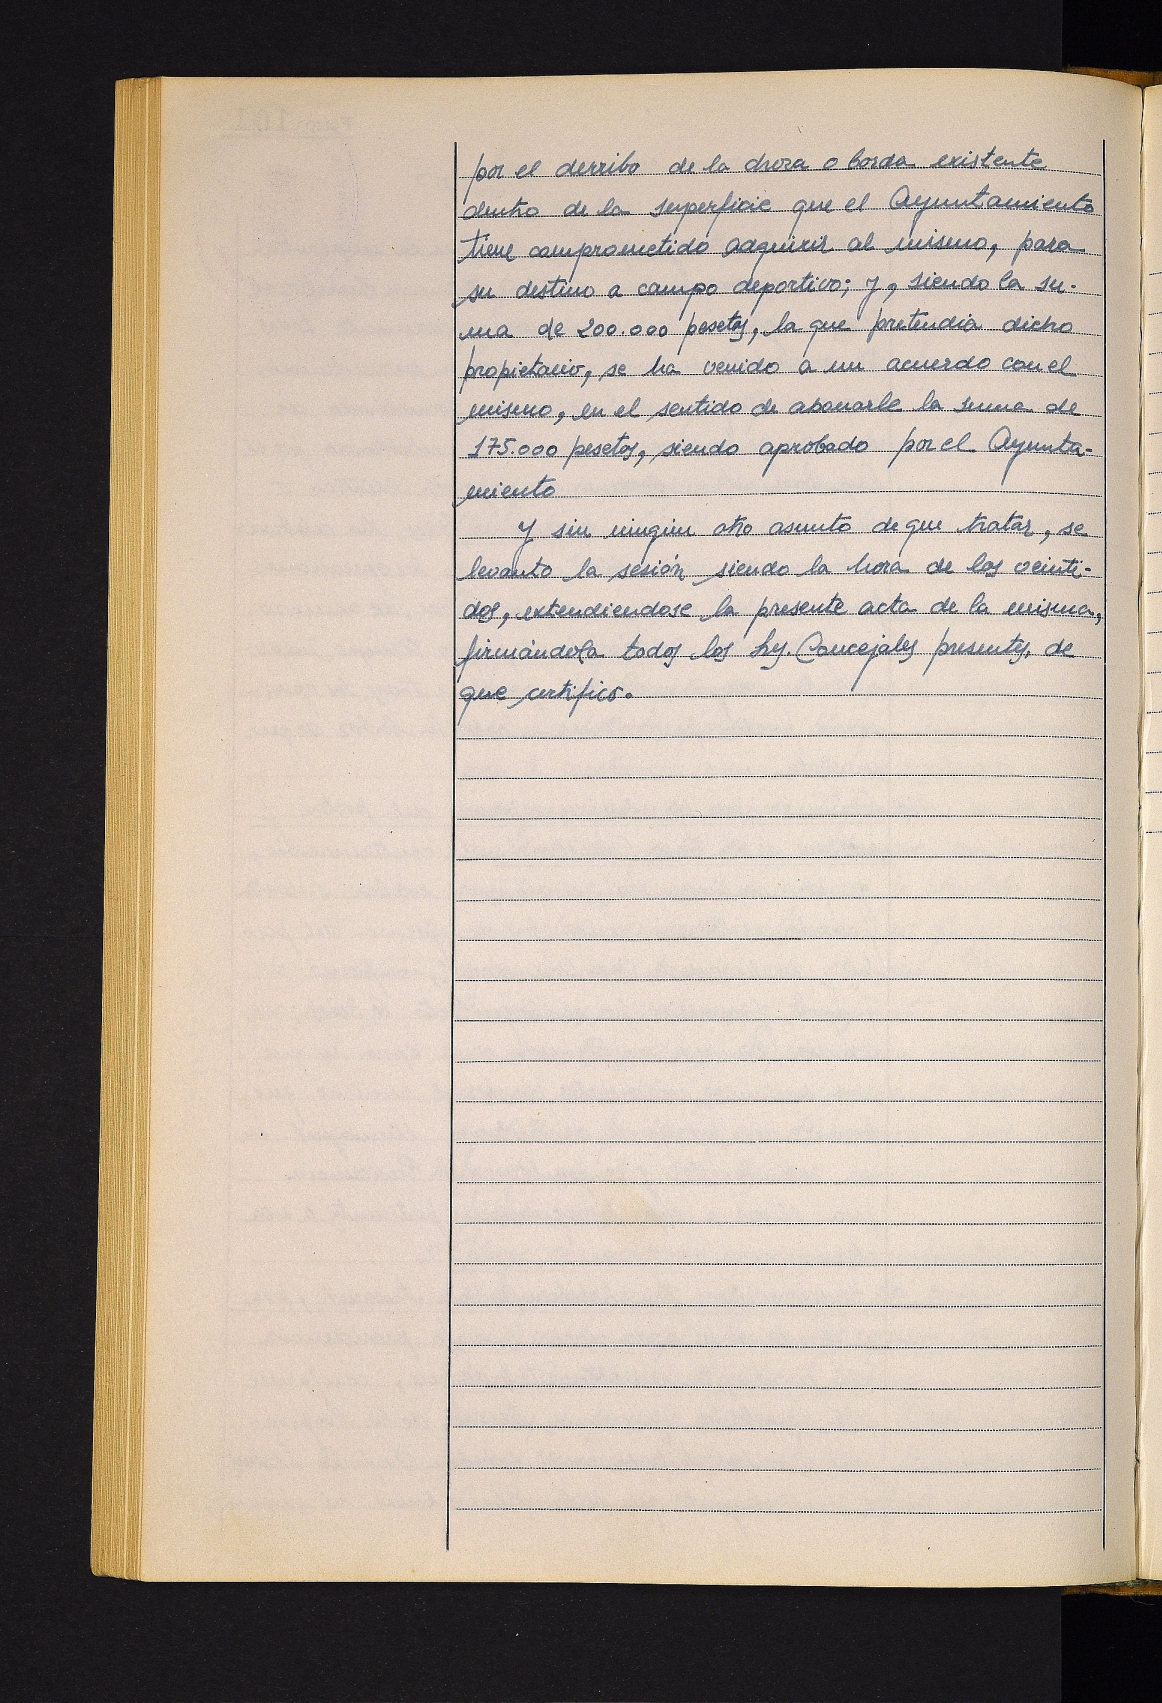 por el derribo de la choza o borda existente
dentro de la superficie que el Ayuntamiento
tiene comprometido adquirir al mismo, para
su destino a campo deportivo; y, siendo la su-
ma de 200.000 pesetas, la que pretendia dicho
propietario, se ha venido a un acuerdo con el
mismo, en el sentido de abonarle la suma de
175.000 pesetas, siendo aprobado por el Ayunta-
miento
Y sin ningún otro asunto de que tratar, se
levanto la sesión siendo la hora de las veinti-
dos, extendiendose la presente acta de la misma,
firmándola todos los Srs. Concejales presentes, de
que certifico.